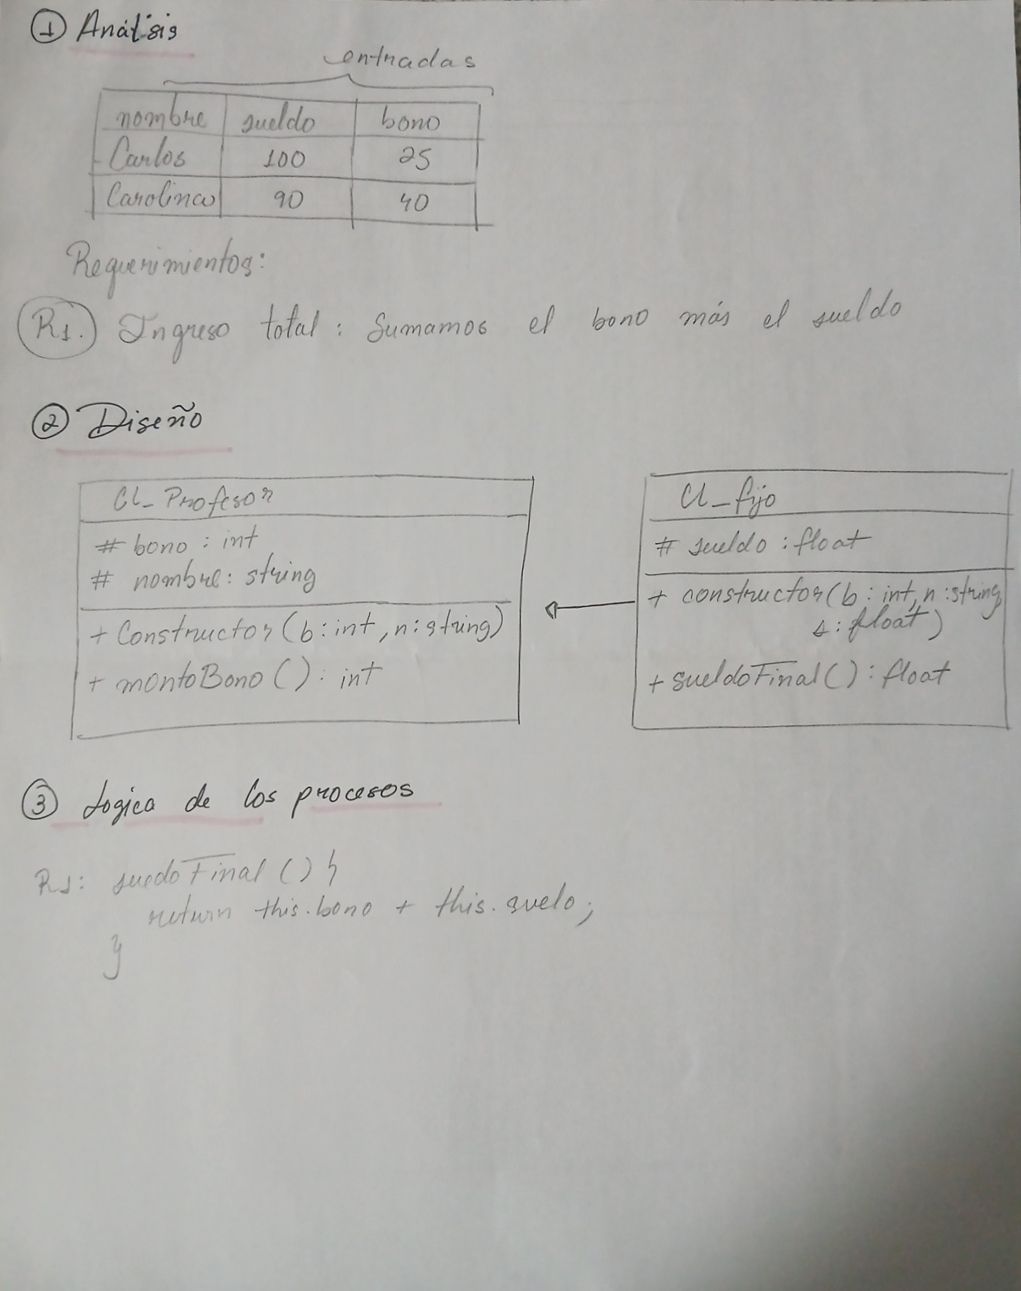 ① Análisis
entradas
nombre sueldo bono
Carlos 100 25
Carolina 90 40
Requerimientos:
R1. Ingreso total : Sumamos el bono más el sueldo
② Diseño
Cl_Profesor
# bono : int
# nombre : string
+ Constructor (b : int, n : string)
+ montoBono () : int
Cl_fijo
# sueldo : float
+ constructor (b : int, n : string
s : float)
+ sueldoFinal () : float
③ Logica de los procesos
R1: suedoFinal () {
return this.bono + this.suelo;
}